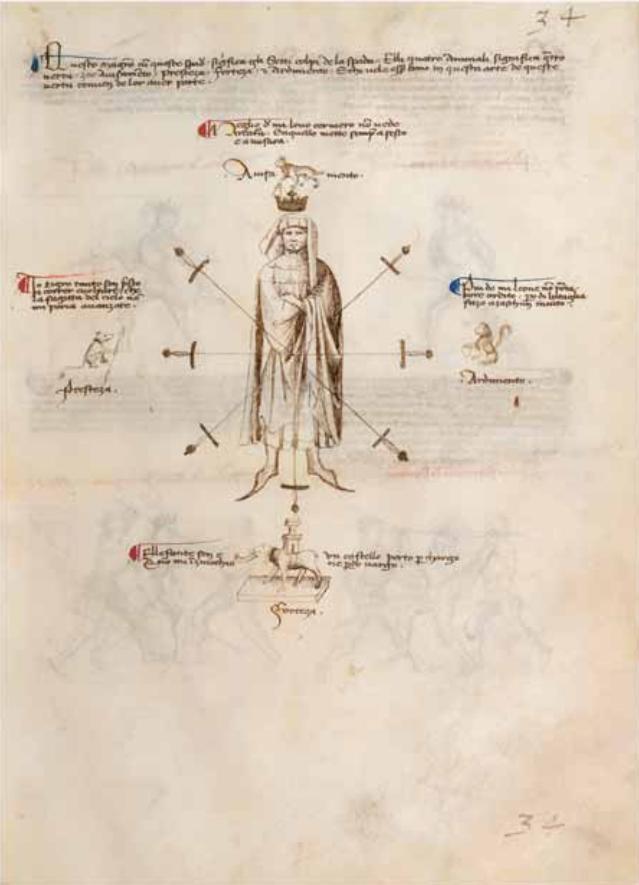 34
Questo magro cū queste spade significa gli Setti colpi de la spada. Elli quatro animali significa q̄tro
vertù. zoe avisamēto. Presteza. Forteza. et Ardimento. Echi vole esser bono in questa arte de queste
vertù conven de lor aver parte.
Meglio de mi lovo cervero nō vede
creatura. Eaquello metto sempre a sesto
e a misura.
Avisa mento.
Io tigro tanto son presto
a correr e voltare. che
la sagitta del cielo nō
mi poria avanzare.
Presteza.
Più de mi leone nō porta
core ardito. di bataglia
fazo a zaschun invito.
Ardimento.
Ellefante son e un castello porto per chargo
E nō mi inzinochio ne perdo vargo.
Forteza.
34